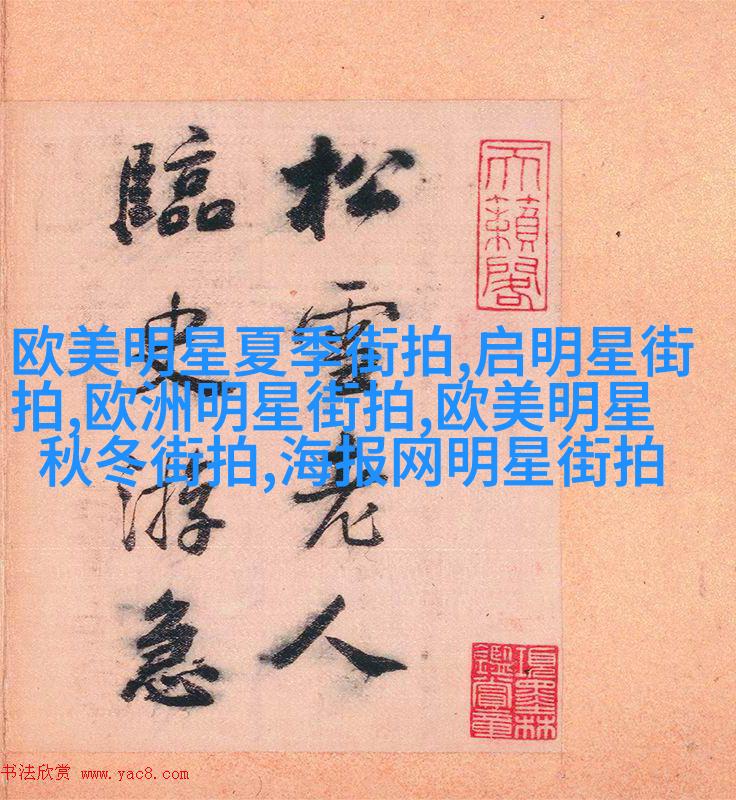 天籟閣
松雪老人
臨史游急
欧美明星夏季街拍,启明星街
拍,欧洲明星街拍,欧美明星
秋冬街拍,海报网明星街拍
項墨林
鑑賞章
书法欣赏 www.yac8.com